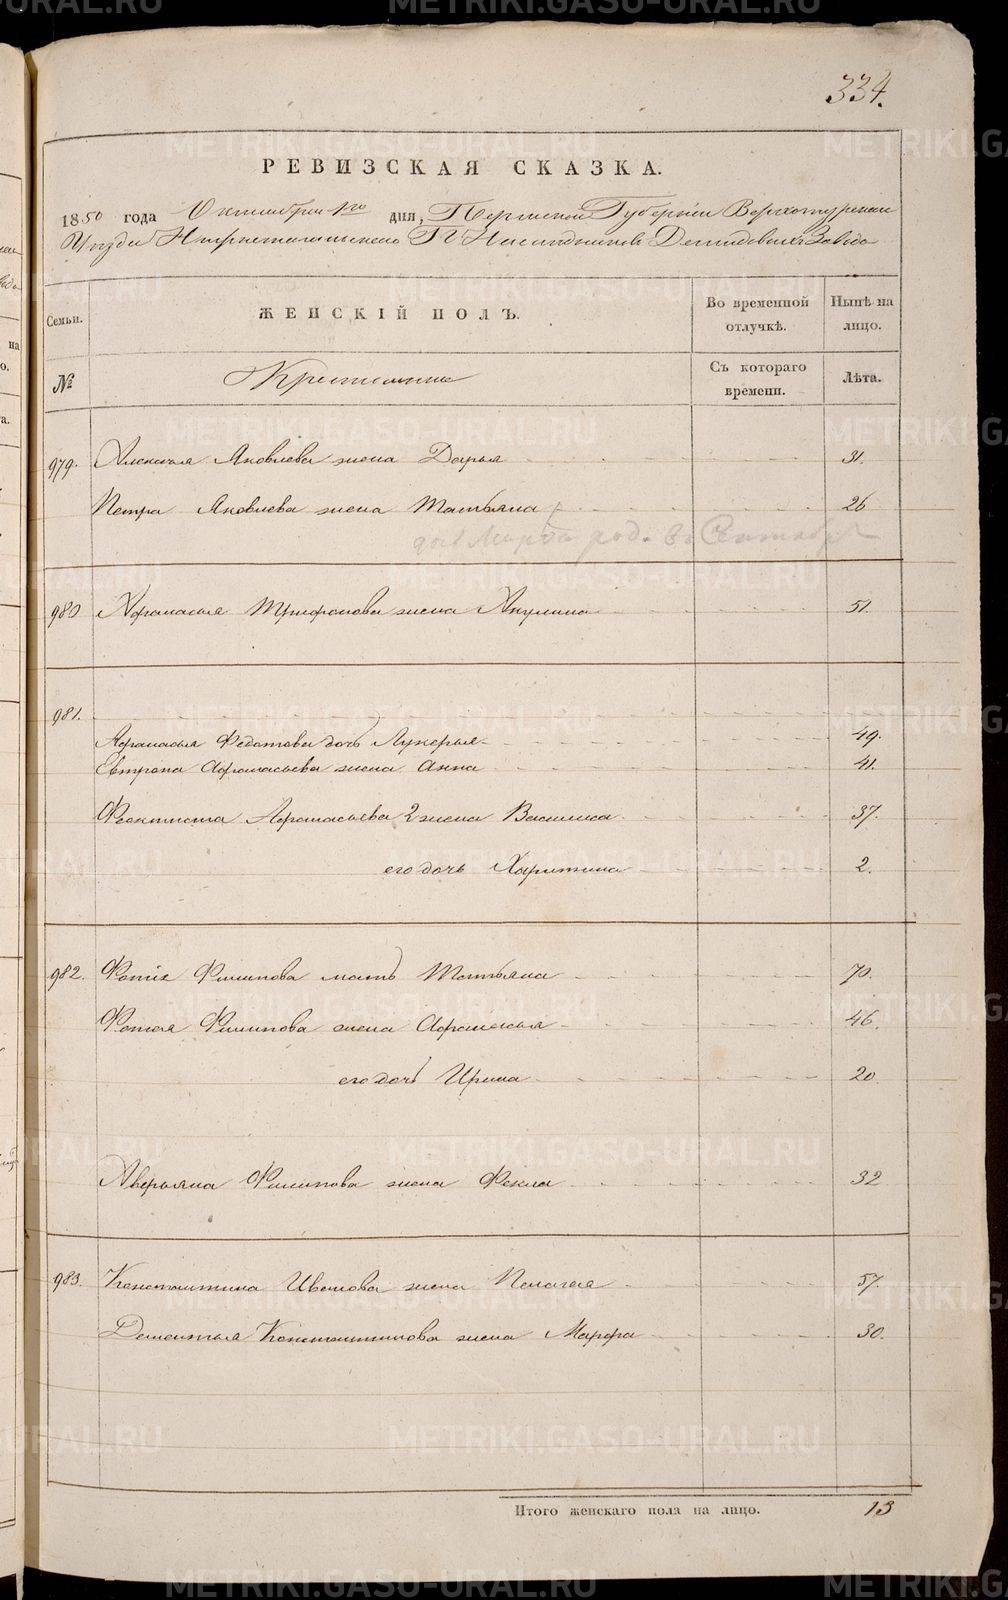 334.
РЕВИЗСКАЯ СКАЗКА.
1850 года Октября 1го дня, Пермской Губернiи Верхотурскаго
Уезда Нижнетагильскаго Гг. Наследников Демидовых Завода
Семьи. ЖЕНСКIЙ ПОЛЪ. Во временной отлучкѣ. Нынѣ на лицо.
№ Крестьяне Съ котораго времени. Лѣта.
979. Алексея Яковлева жена Дарья 31.
Петра Яковлева жена Татьяна 26
доч Марфа род. в Сентябр
980 Афанасья Трифонова жена Акулина 51.
981.
Афанасья Федотова дочь Лукерья 49.
Евтропа Афанасьева жена Анна 41.
Феоктиста Афанасьева 2 жена Василиса 37.
его дочь Харитина 2.
982. Фотiя Филипова мать Татьяна 70.
Фотея Филипова жена Афанасья 46.
его дочь Ирина 20
Аверьяна Филипова жена Фекла 32
983. Константина Иванова жена Пелагея 57.
Дементья Константинова жена Марфа 30.
Итого женскаго пола на лицо. 13
METRIKI.GASO-URAL.RU